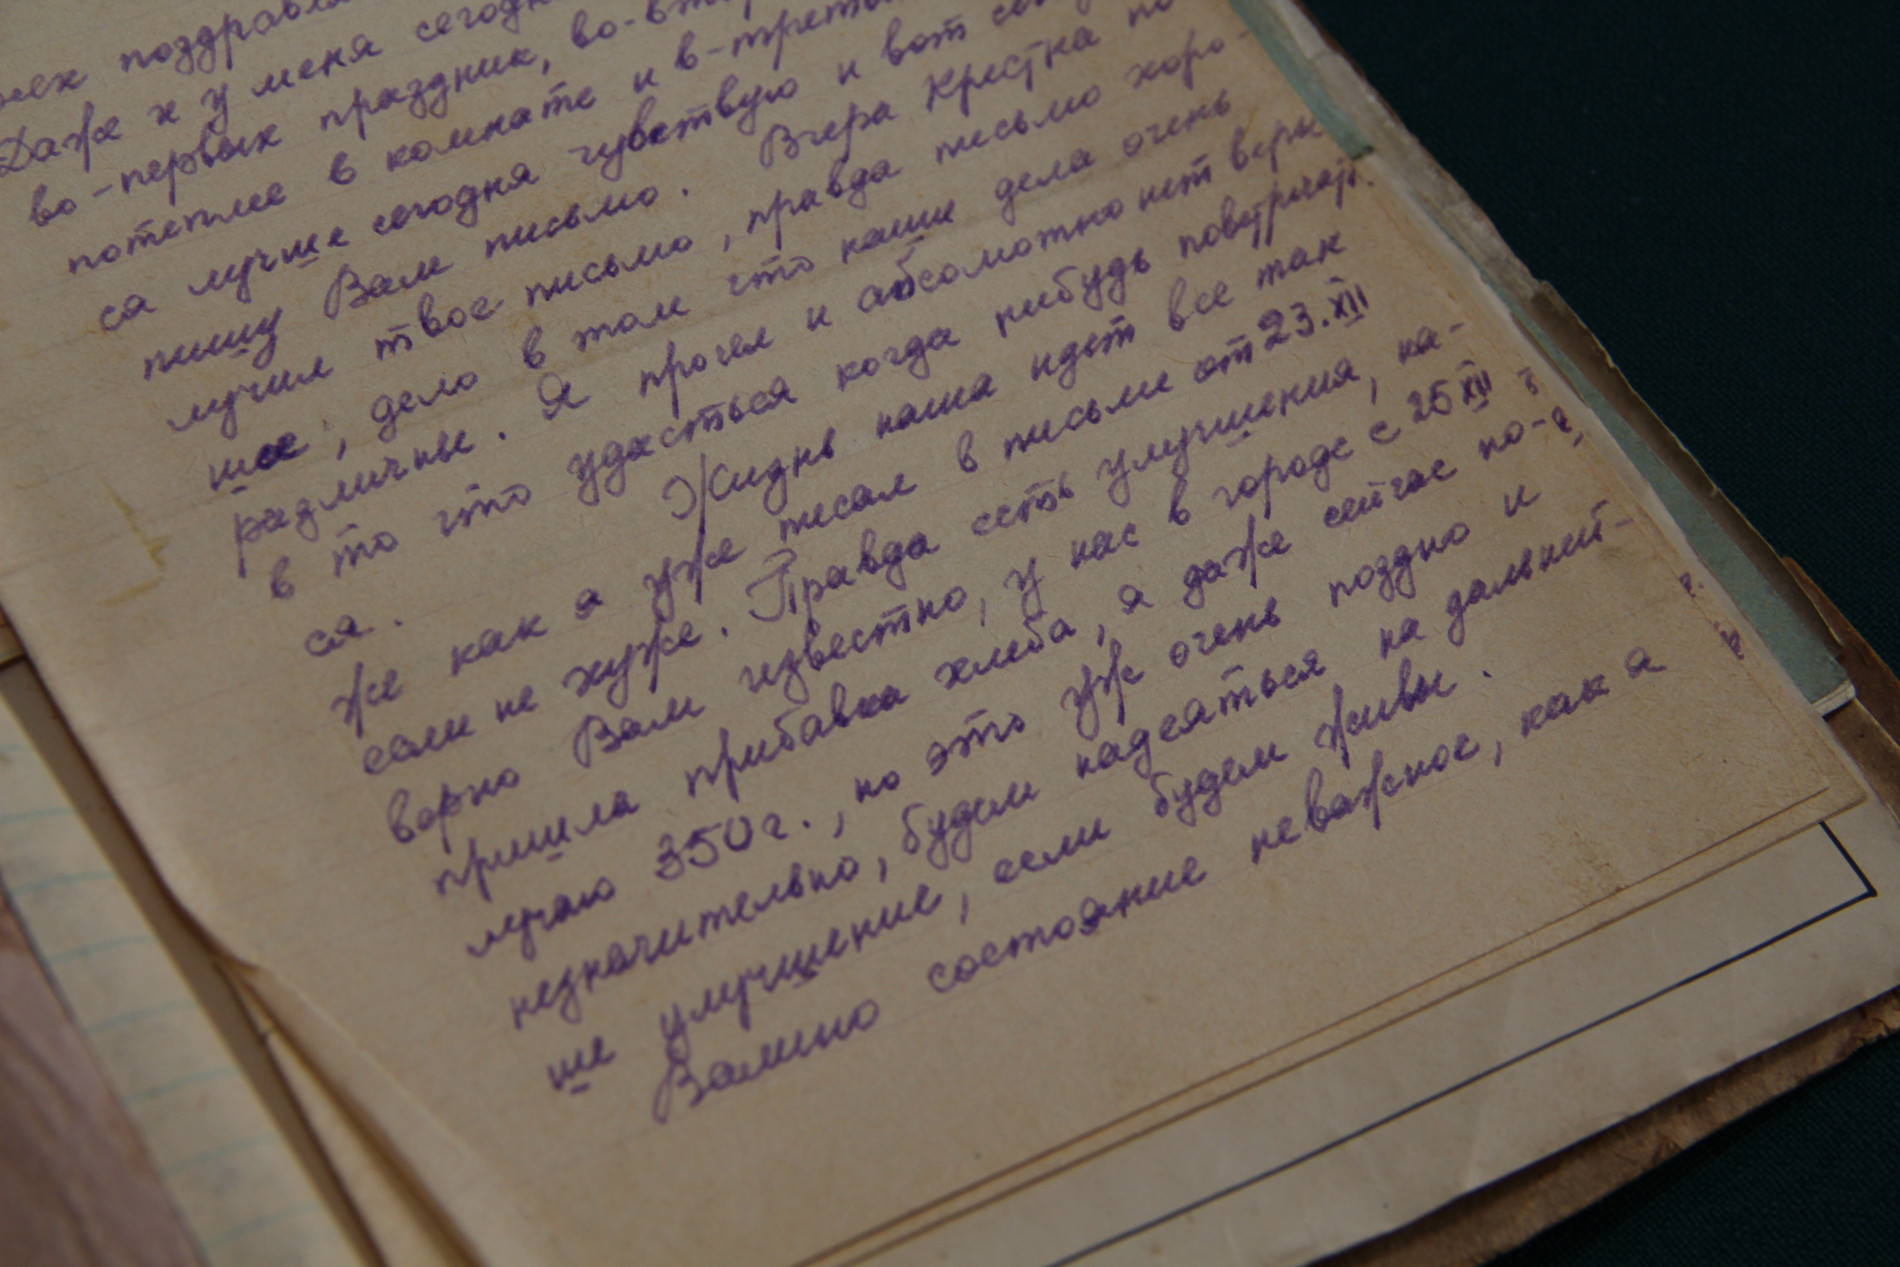 всех поздравля
Даже и у меня сегодн
во-первых праздник, во-вто
потеплее в комнате и в-треть
са лучше сегодня чувствую и вот се
пишу Вам письмо. Вчера Крестка по
лучил твое письмо, правда письмо хоро-
шее, дело в том что наши дела очень
различны. Я прочел и абсолютно нет веры
в то что удасться когда нибудь повстречать
ся. Жизнь наша идет все так
же как я уже писал в письме от 23.XII
если не хуже. Правда есть улучшения, на-
верно Вам известно, у нас в городе с 25 XII
пришла прибавка хлеба, я даже сейчас по-
лучаю 350 г., но это уж очень поздно и
незначительно, будем надеяться на дальней-
ше улучшение, если будем живы.
Валино состояние неважное, как я